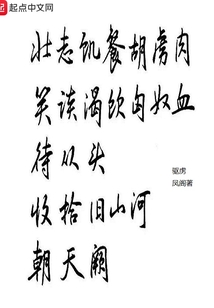 起点中文网
壮志饥餐胡虏肉
笑谈渴饮匈奴血
待从头
收拾旧山河
朝天阙
驱虏
凤阁著